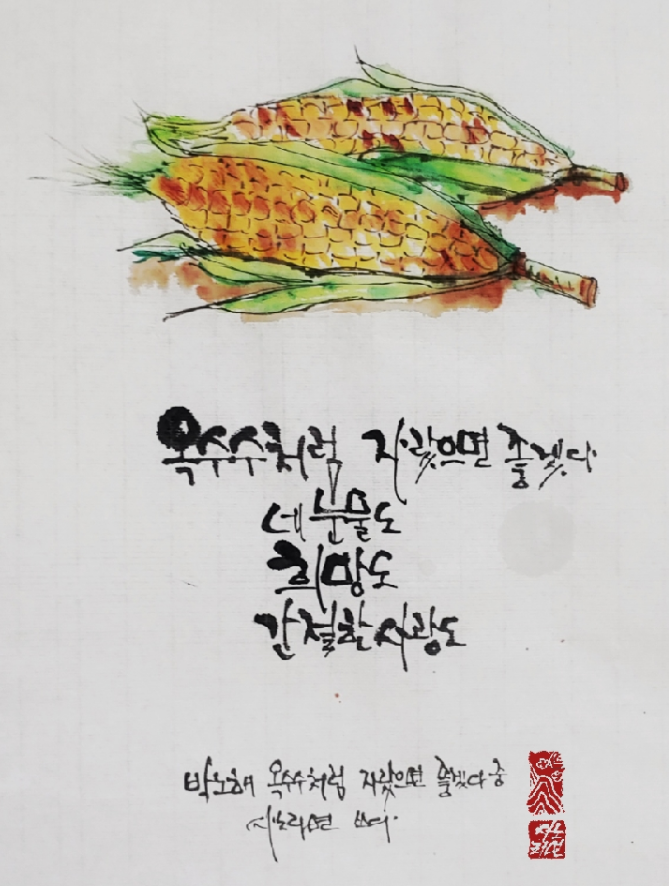 옥수수처럼 자랐으면 좋겠다
네 눈물도
희망도
간절한 사랑도
박노해 옥수수처럼 자랐으면 좋겠다 중
쓰다.